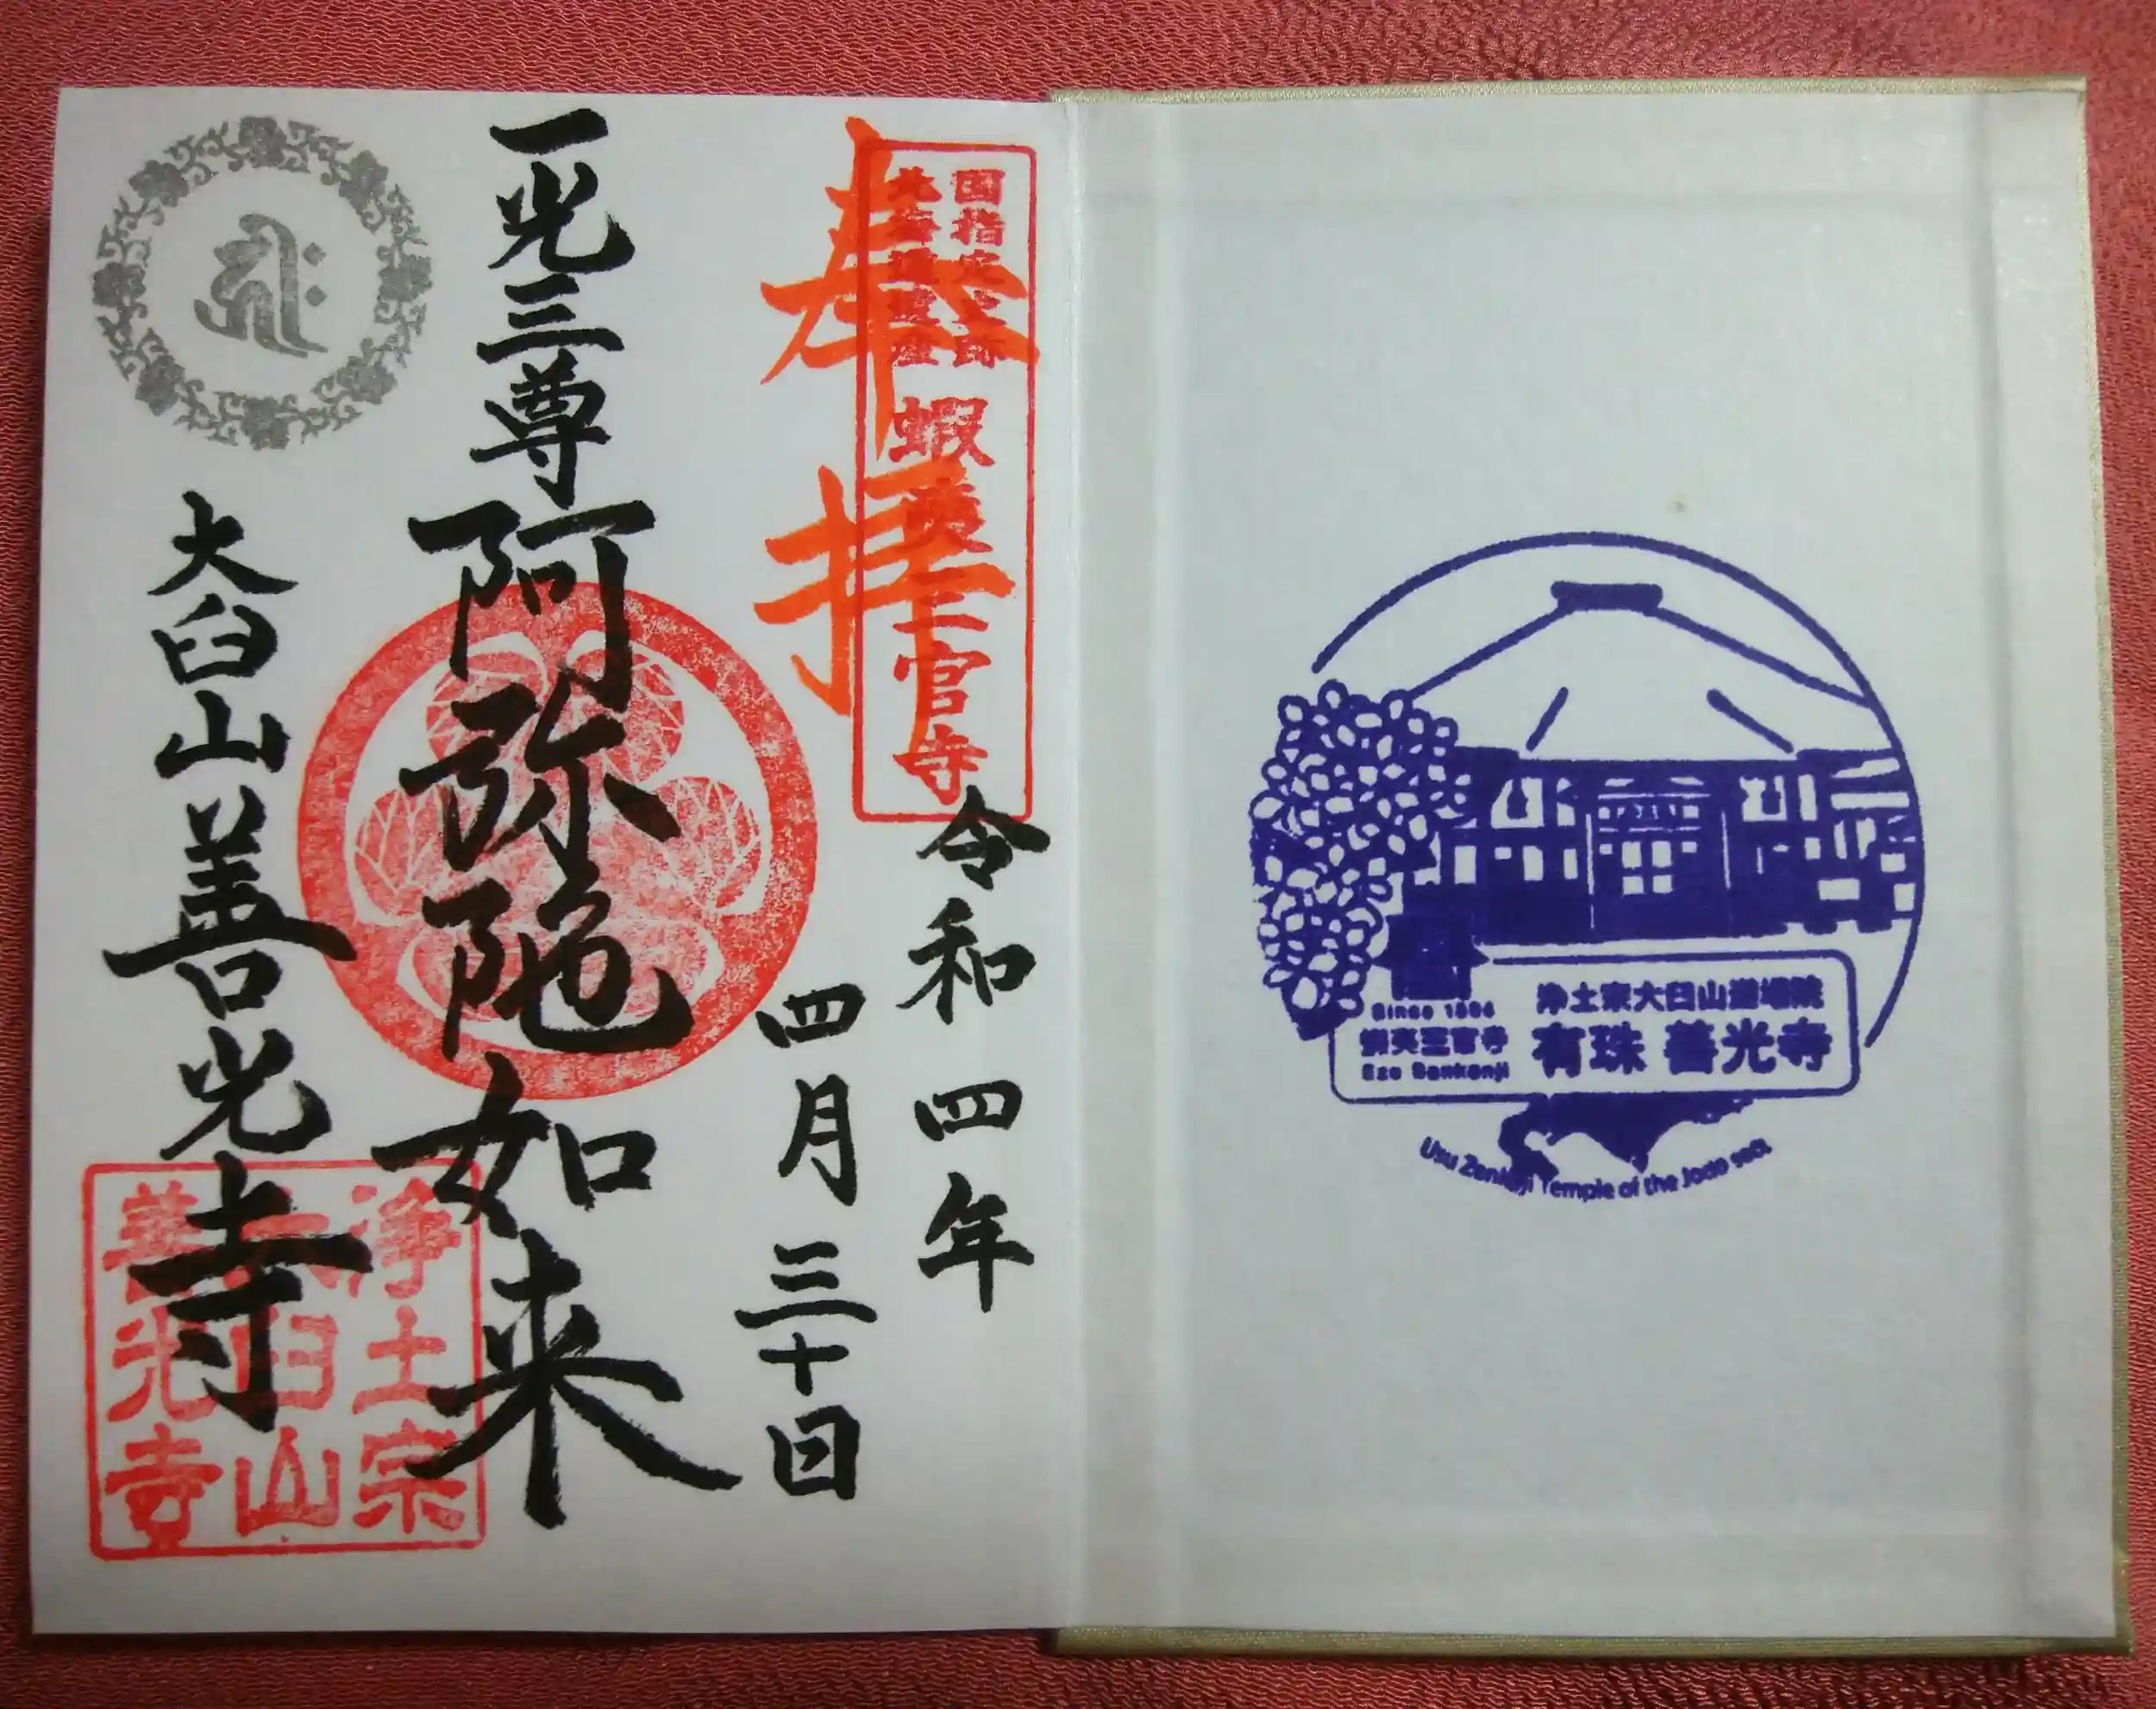 奉拝
国指定史跡
北海道遺産
蝦夷三官寺
令和四年
四月三十日
一光三尊
阿弥陀如来
大臼山善光寺
浄土宗
大臼山
善光寺
浄土宗大臼山道場院
有珠 善光寺
Since 1804
蝦夷三官寺
Ezo Sankanji
Usu Zenkoji Temple of the Jodo sect